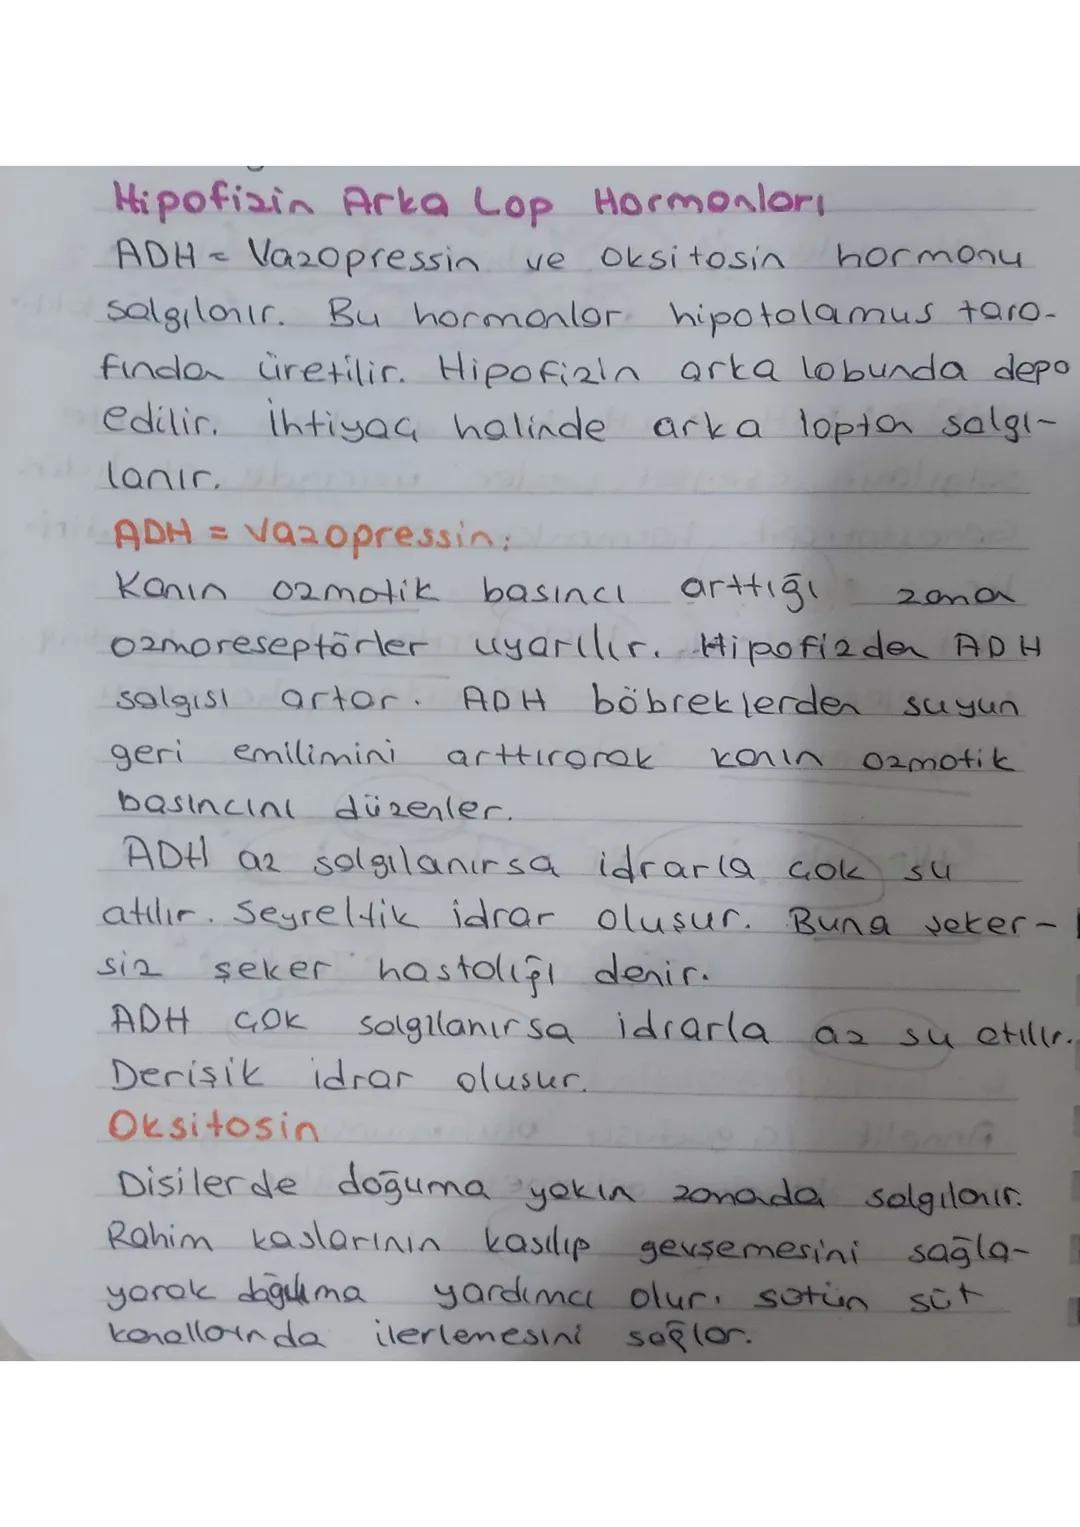 Hipofizin Arka Lop Hormonları
ADH = Vazopressin ve Oksitosin hormonu
salgılanır. Bu hormonlar hipotalamus tara-
fından üretilir. Hipofizin arka lobunda depo
edilir. İhtiyaç halinde arka loptan salgı-
lanır.
ADH = Vazopressin:
Kanın ozmotik basıncı arttığı zaman
ozmoreseptörler uyarılır. Hipofizden ADH
salgısı artar. ADH böbreklerden suyun
geri emilimini arttırarak kanın ozmotik
basıncını düzenler.
ADH az salgılanırsa idrarla çok su
atılır. Seyreltik idrar oluşur. Buna şeker-
siz şeker hastalığı denir.
ADH çok salgılanırsa idrarla az su atılır.
Derişik idrar oluşur.
Oksitosin
Dişilerde doğuma yakın zamanda salgılanır.
Rahim kaslarının kasılıp gevşemesini sağla-
yarak doğuma yardımcı olur. sütün süt
kanallarında ilerlemesini sağlar.